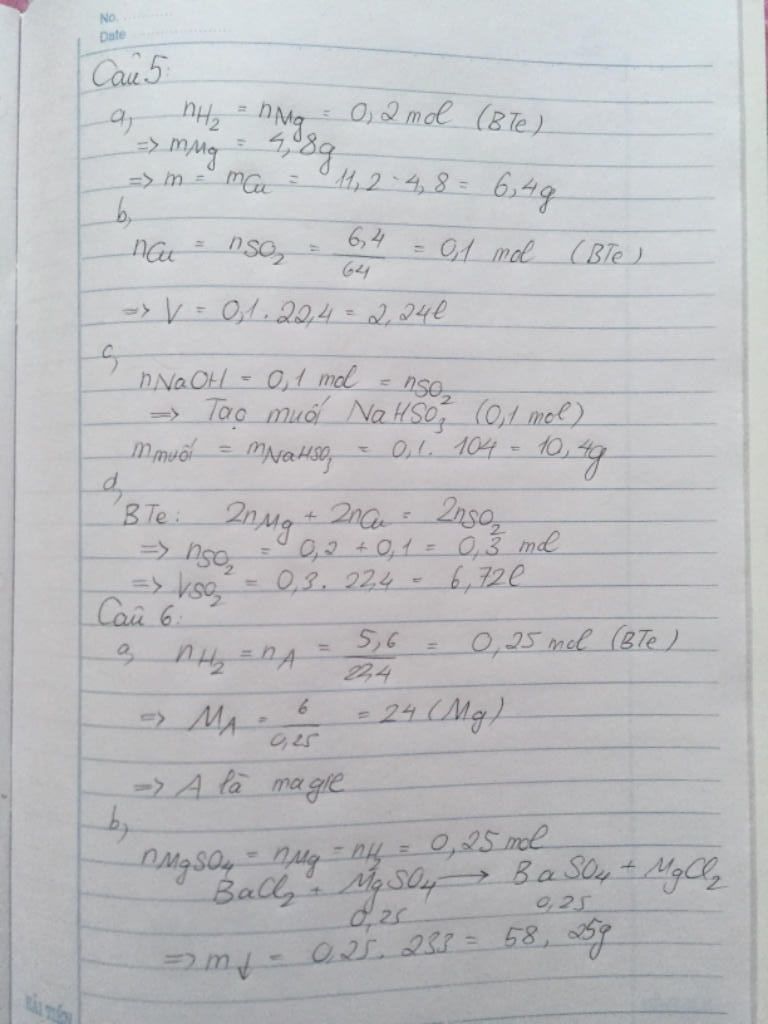 No. ............
Date ............
Câu 5:
a, nH₂ = nMg = 0,2 mol (BTe)
=> mMg = 4,8g
=> m = mCu = 11,2 - 4,8 = 6,4g
b,
nCu = nSO₂ = 6,4/64 = 0,1 mol (BTe)
=> V = 0,1 . 22,4 = 2,24l
c,
nNaOH = 0,1 mol = nSO₂
=> Tạo muối NaHSO₃ (0,1 mol)
mmuối = mNaHSO₃ = 0,1 . 104 = 10,4g
d,
BTe: 2nMg + 2nCu = 2nSO₂
=> nSO₂ = 0,2 + 0,1 = 0,3 mol
=> VSO₂ = 0,3 . 22,4 = 6,72l
Câu 6:
a, nH₂ = nA = 5,6/22,4 = 0,25 mol (BTe)
=> MA = 6/0,25 = 24 (Mg)
=> A là magie
b,
nMgSO₄ = nMg = nH₂ = 0,25 mol
BaCl₂ + MgSO₄ → BaSO₄ + MgCl₂
0,25 0,25
=> m↓ = 0,25 . 233 = 58,25g